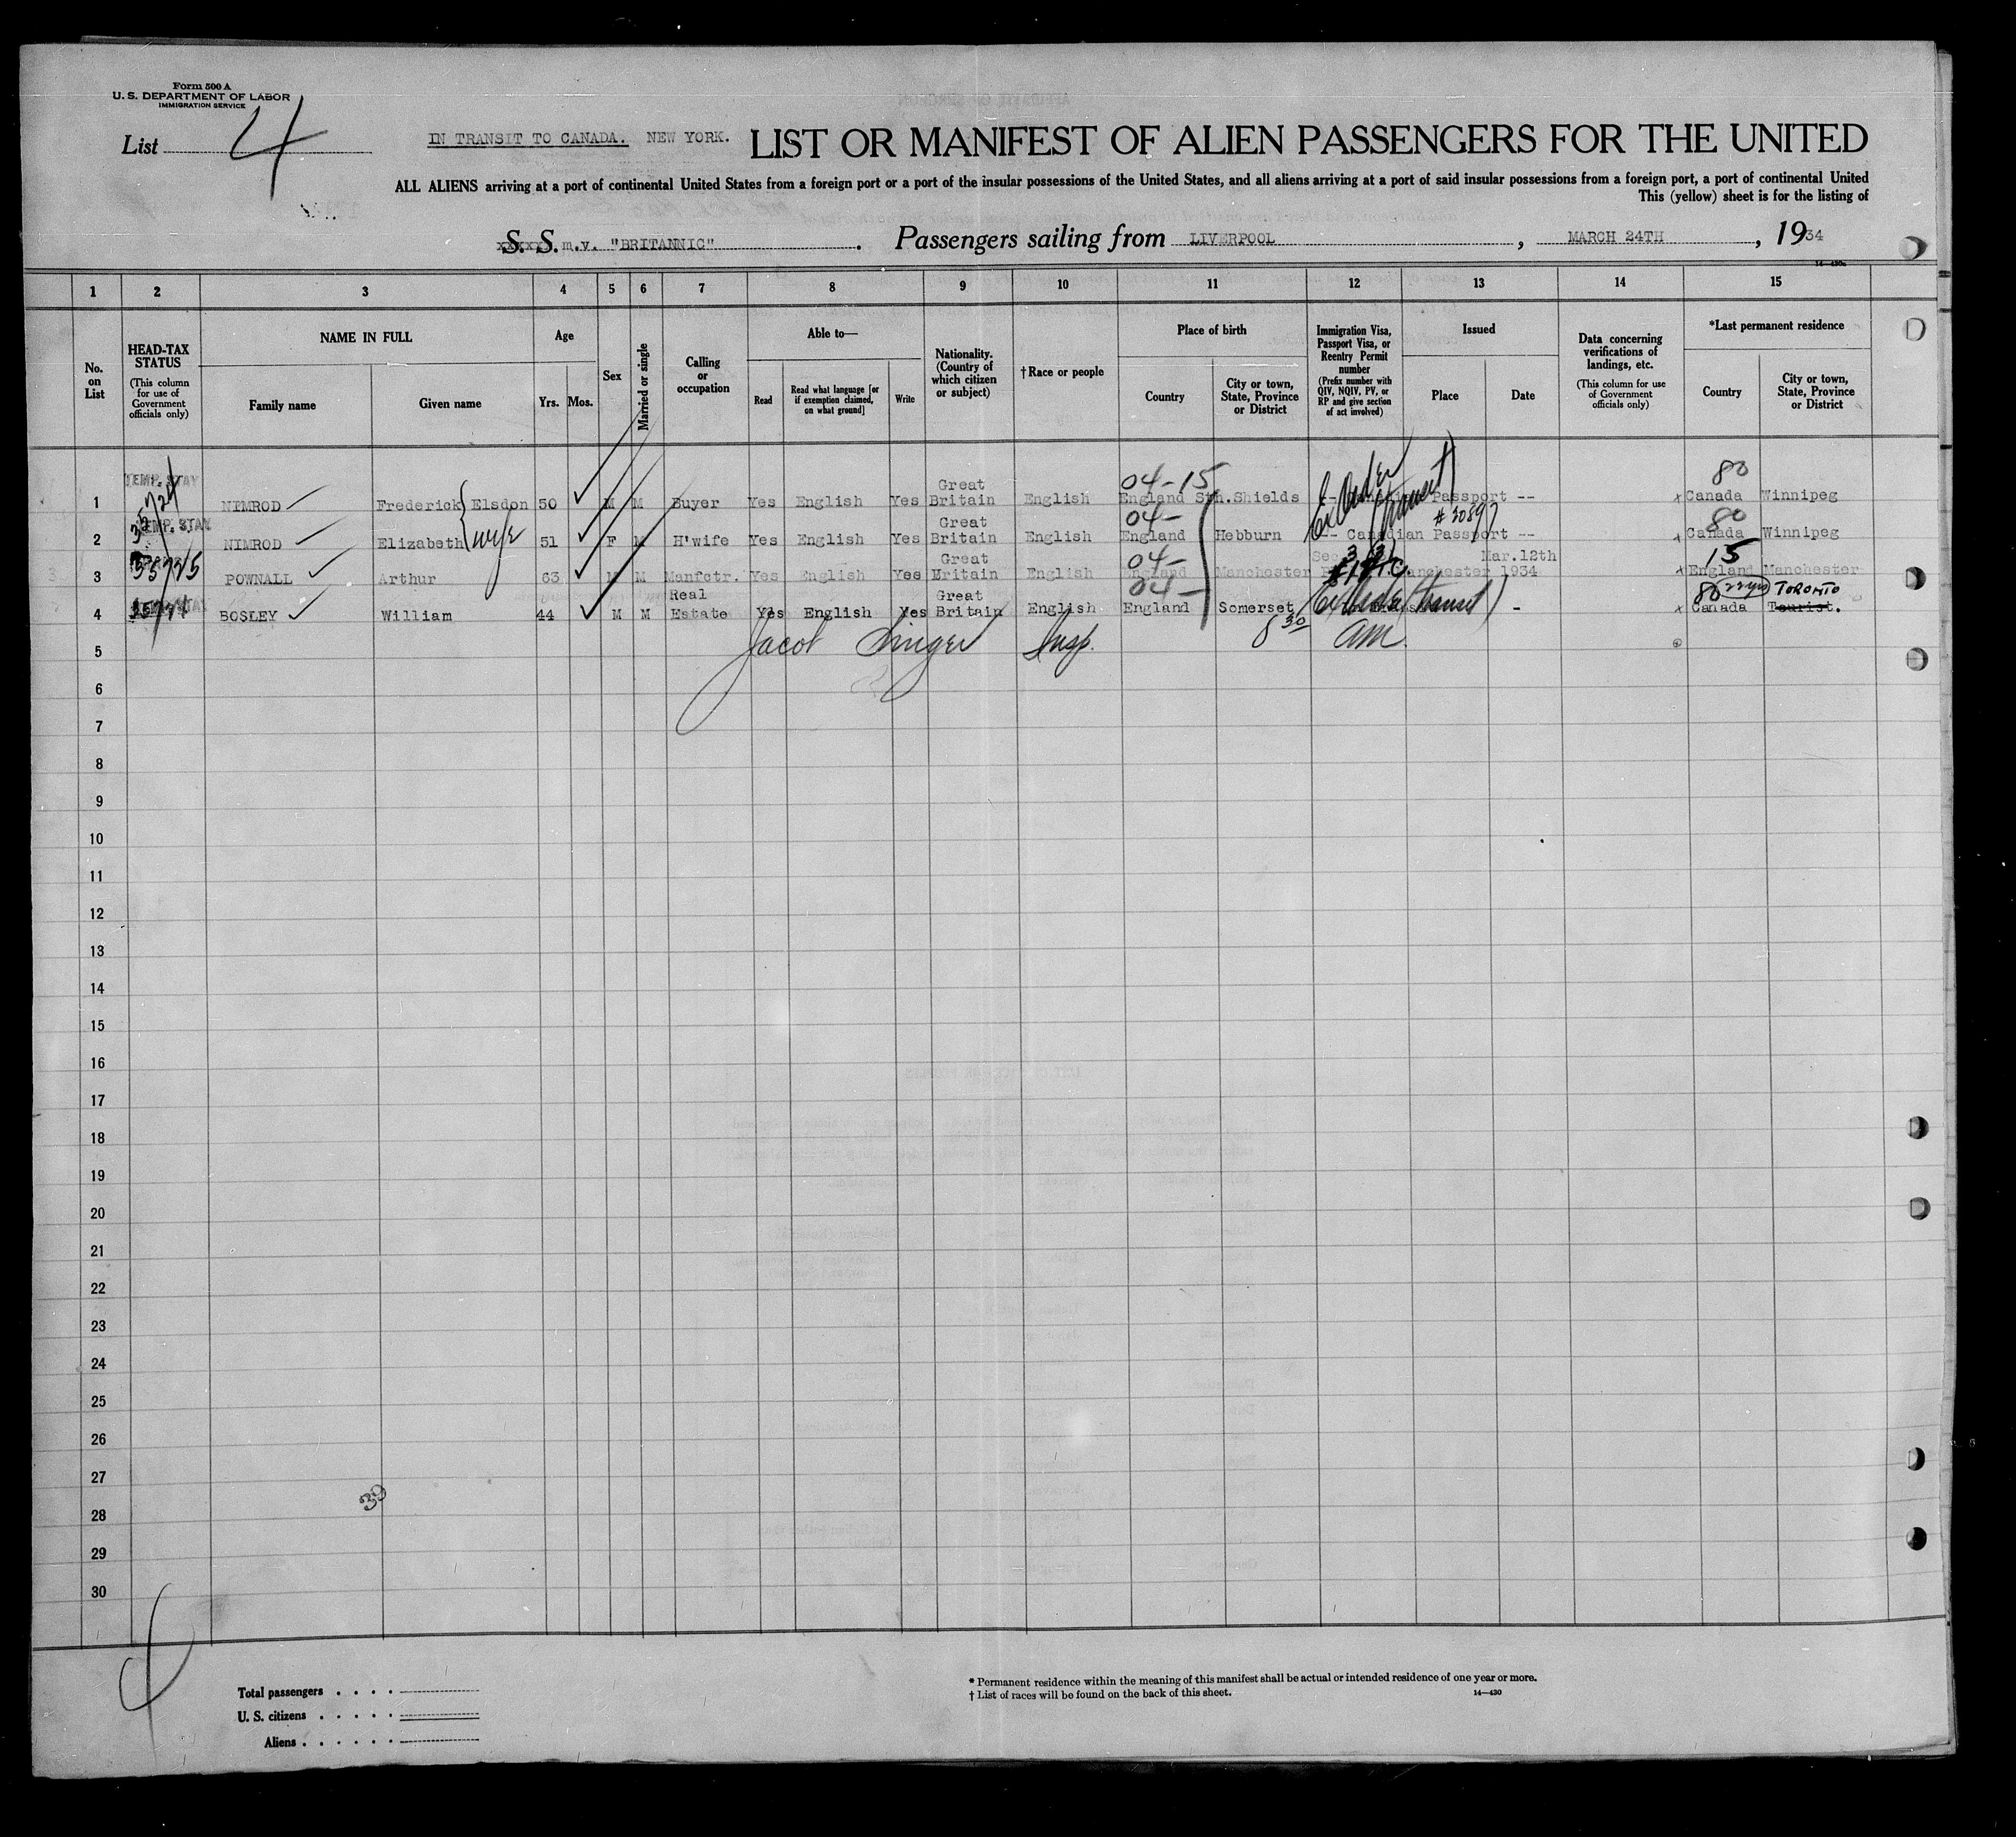 Form 500 A
U. S. DEPARTMENT OF LABOR
IMMIGRATION SERVICE
List 4
IN TRANSIT TO CANADA. NEW YORK. LIST OR MANIFEST OF ALIEN PASSENGERS FOR THE UNITED
ALL ALIENS arriving at a port of continental United States from a foreign port or a port of the insular possessions of the United States, and all aliens arriving at a port of said insular possessions from a foreign port, a port of continental United
This (yellow) sheet is for the listing of
S. S. m.v. "BRITANNIC" . Passengers sailing from LIVERPOOL , MARCH 24TH , 1934
14—430a
1 2 3 4 5 6 7 8 9 10 11 12 13 14 15
No. on List
HEAD-TAX STATUS
(This column for use of Government officials only)
NAME IN FULL
Family name Given name
Age
Yrs. Mos.
Sex
Married or single
Calling or occupation
Able to—
Read
Read what language [or if exemption claimed, on what ground]
Write
Nationality. (Country of which citizen or subject)
†Race or people
Place of birth
Country
City or town, State, Province or District
Immigration Visa, Passport Visa, or Reentry Permit number
(Prefix number with QIV, NQIV, PV, or RP and give section of act involved)
Issued
Place Date
Data concerning verifications of landings, etc.
(This column for use of Government officials only)
*Last permanent residence
Country
City or town, State, Province or District
TEMP. STAY 04-15 80
1 NIMROD Frederick Elsdon 50 M M Buyer Yes English Yes Great Britain English England Sth.Shields Passport -- Canada Winnipeg
TEMP. STAY 04- 80
2 NIMROD Elizabeth wife 51 F M H'wife Yes English Yes Great Britain English England Hebburn -- Canadian Passport -- Canada Winnipeg
35725 04- 15
3 POWNALL Arthur 63 M M Manfctr. Yes English Yes Great Britain English England Manchester Manchester Mar.12th 1934 England Manchester
04- 80 TORONTO
4 BOSLEY William 44 M M Real Estate Yes English Yes Great Britain English England Somerset transit) - Canada Tourist.
5 Jacob Singer Insp. 8 30 am.
6
7
8
9
10
11
12
13
14
15
16
17
18
19
20
21
22
23
24
25
26
27
39
28
29
30
Total passengers
U. S. citizens
Aliens
* Permanent residence within the meaning of this manifest shall be actual or intended residence of one year or more.
† List of races will be found on the back of this sheet.
14—430